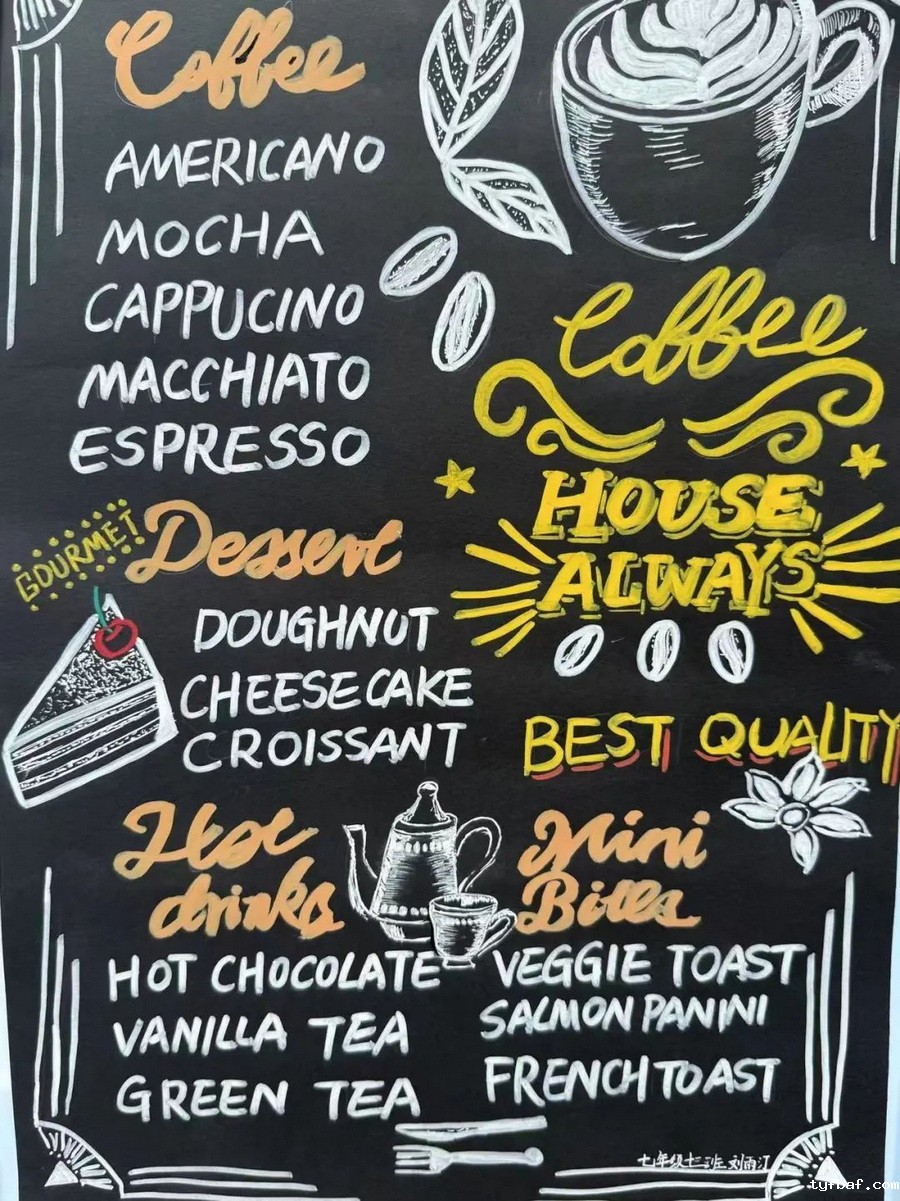 Coffee
AMERICANO
MOCHA
CAPPUCINO
MACCHIATO
ESPRESSO
Coffee
HOUSE
ALWAYS
BEST QUALITY
GOURMET
Dessert
DOUGHNUT
CHEESECAKE
CROISSANT
Hot
drinks
HOT CHOCOLATE
VANILLA TEA
GREEN TEA
Mini
Bites
VEGGIE TOAST
SALMON PANINI
FRENCH TOAST
七年级十三班 刘雨汀
tyfbaf.com